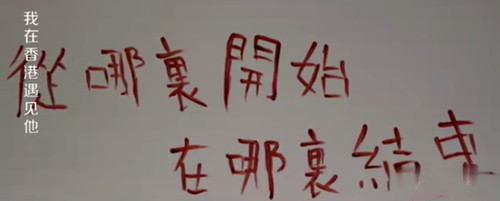 我在香港遇见他
從哪裏開始
在哪裏結束